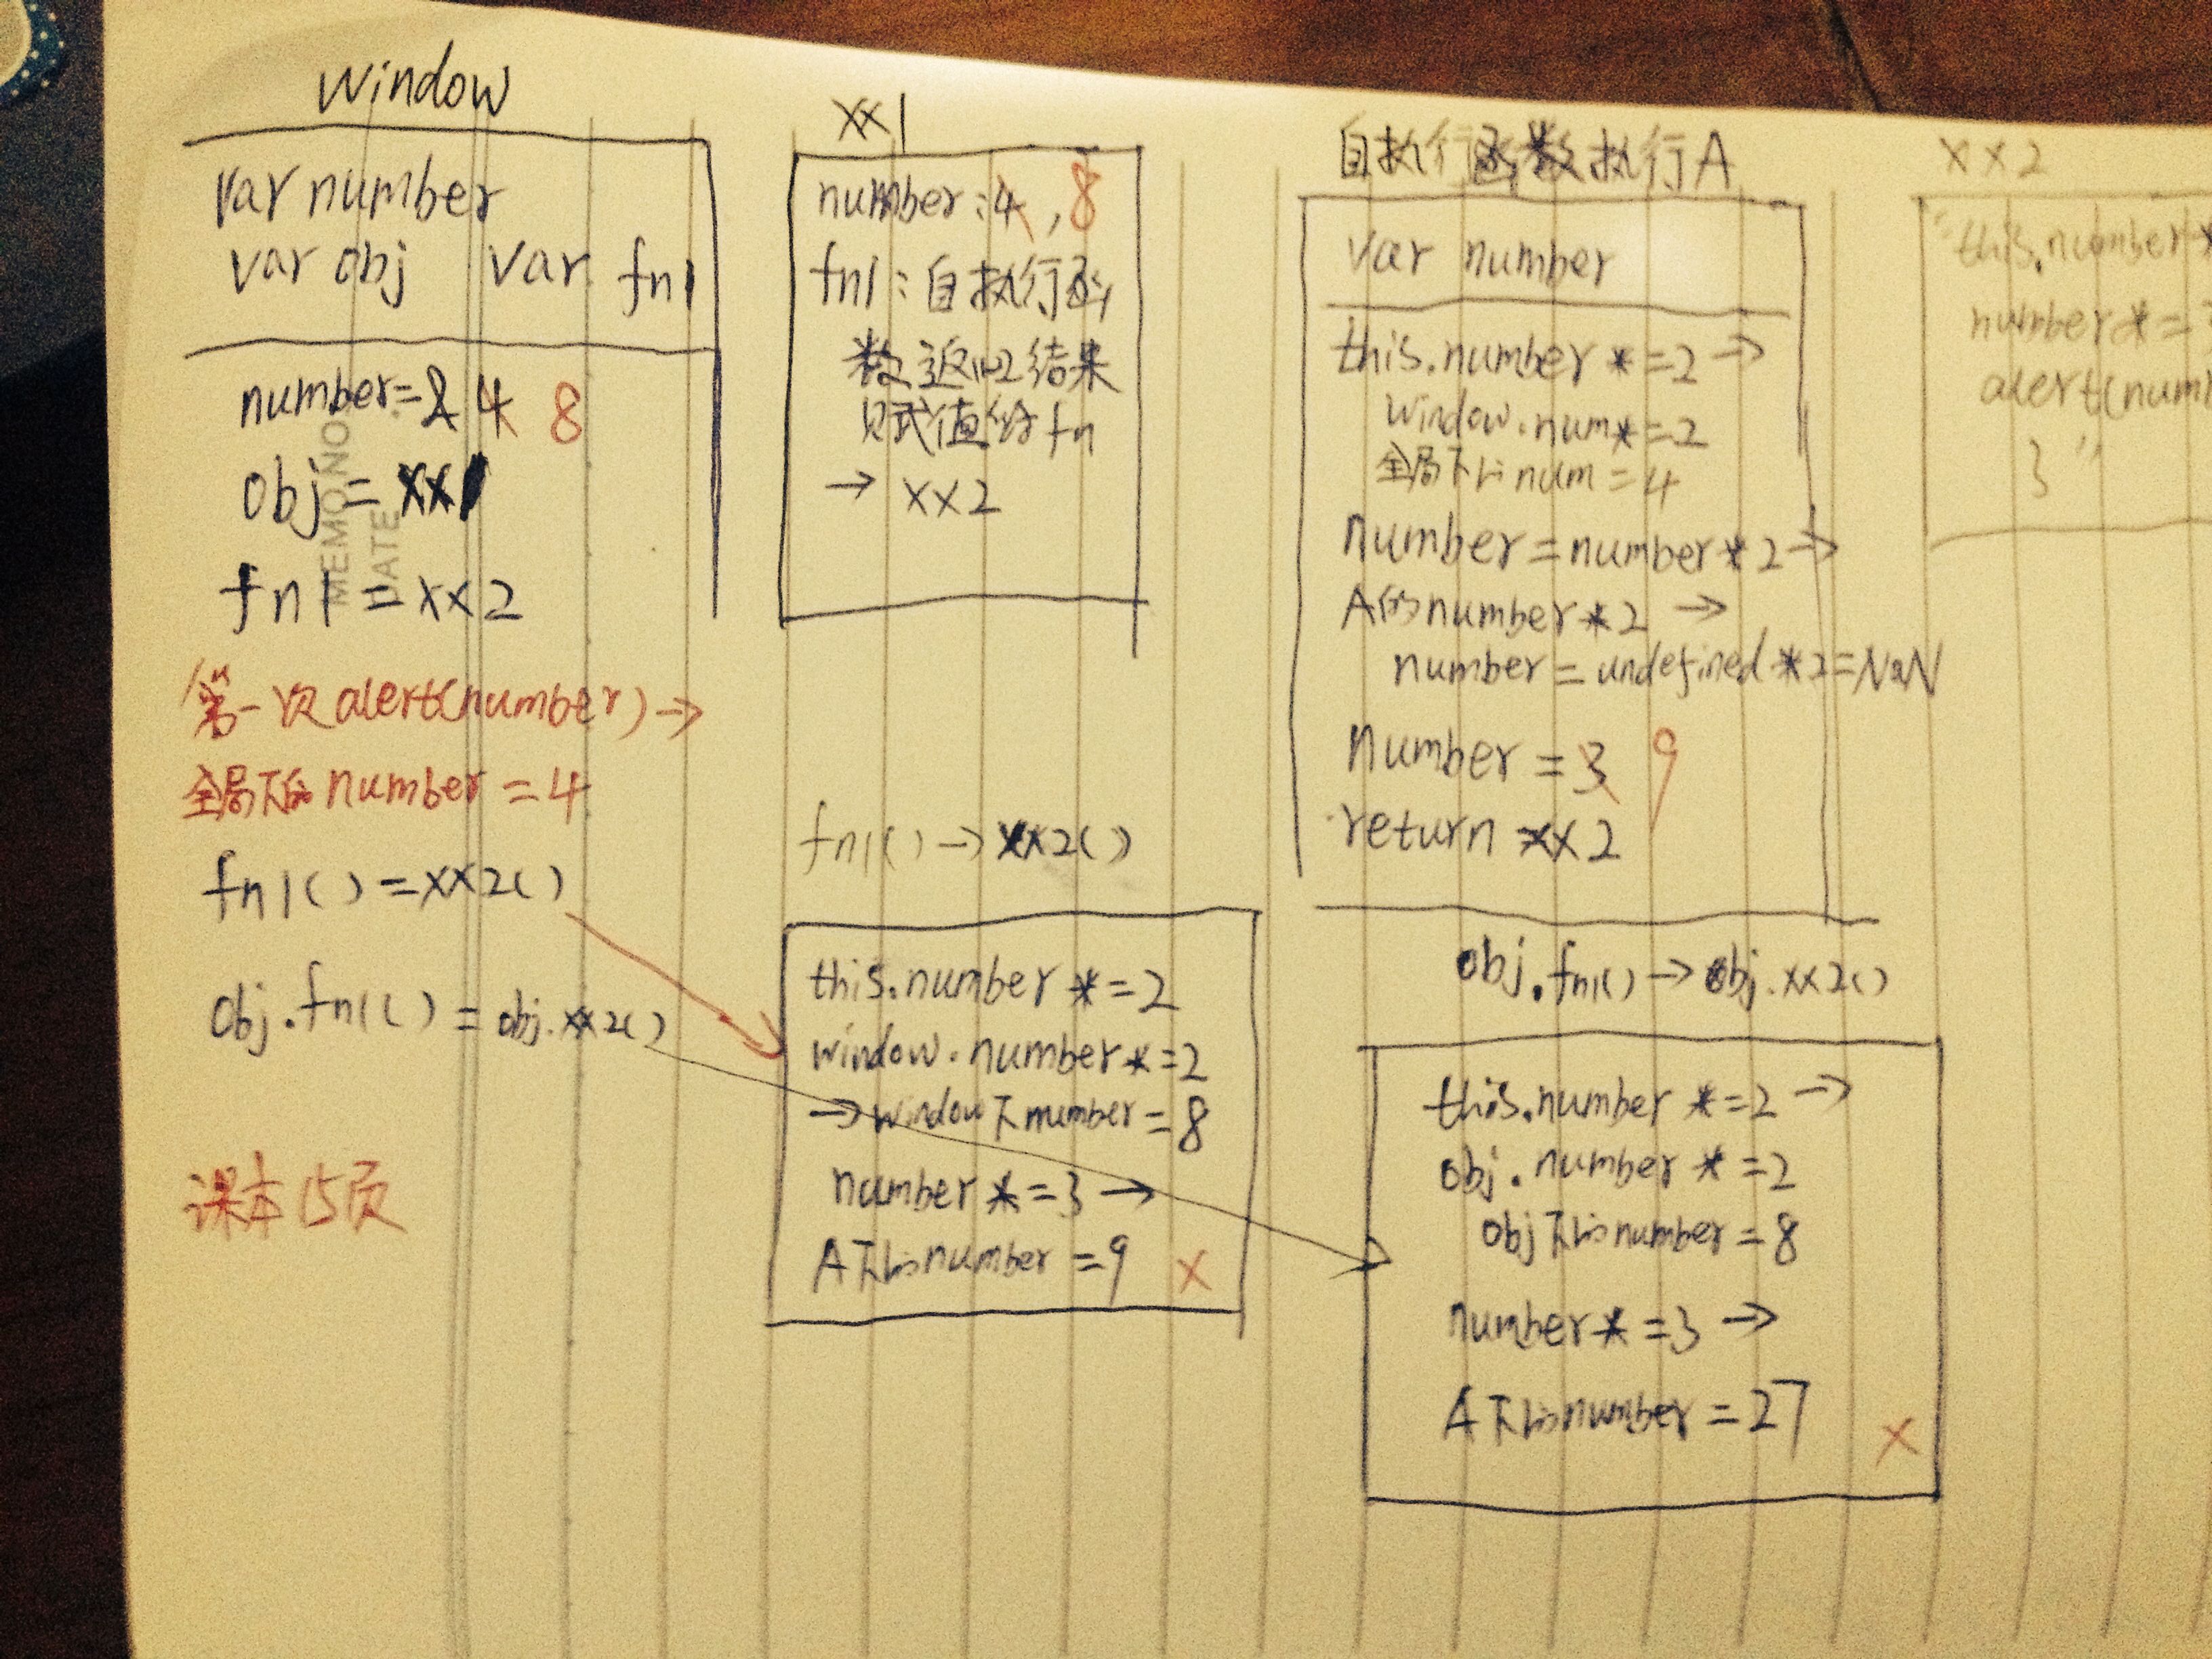 window
var number
var obj var fn1
number=2 4 8
obj = xx1
fn1 = xx2
MEMO NO.
DATE
第一次alert(number)→
全局下的number=4
fn1()=xx2()
obj.fn1()=obj.xx2()
课本15页
xx1
number:4,8
fn1:自执行函
数返回结果
赋值给fn
→ xx2
fn1()→xx2()
this.number*=2
window.number*=2
→window下number=8
number*=3→
A下的number=9 ×
自执行函数执行A
var number
this.number*=2→
window.num*=2
全局下的num=4
number=number*2→
A的number*2→
number=undefined*2=NaN
number=3 9
return xx2
obj.fn1()→obj.xx2()
this.number*=2→
obj.number*=2
obj下的number=8
number*=3→
A下的number=27 ×
xx2
"this.number*
number*=
alert(num
}"